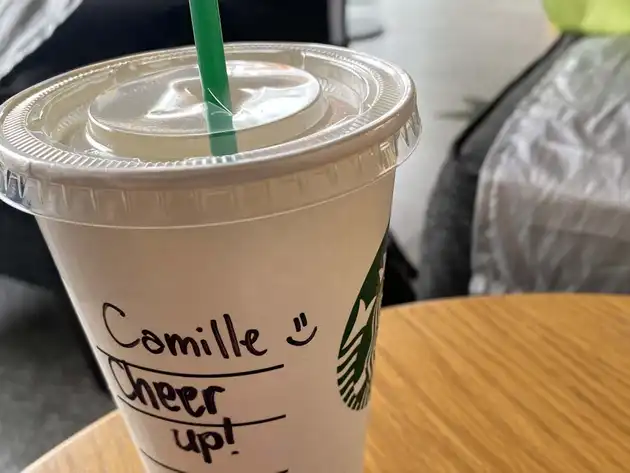 Camille
Cheer
up!